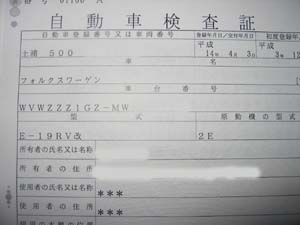 自動車検査証
自動車登録番号又は車両番号 登録年月日/交付年月日 初度登録年
平成 平成
土浦 500 14年 4月 3日 3年 12
車名
フォルクスワーゲン
車台番号
WVWZZZ1GZ-MW
型式 原動機の型式
E-19RV改 2E
所有者の氏名又は名称
所有者の住所
使用者の氏名又は名称 ***
使用者の住所 ***